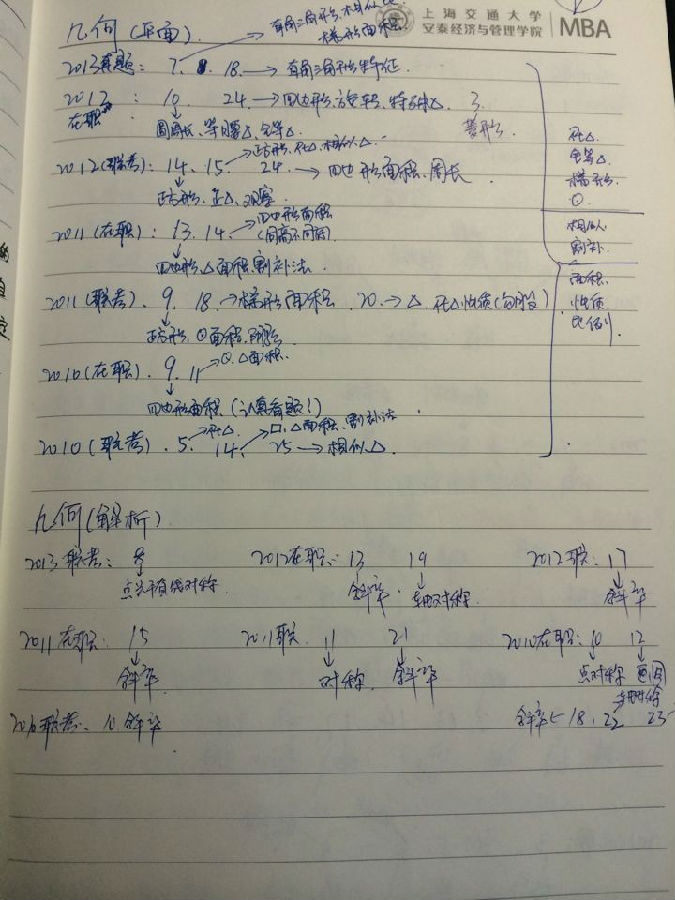 上海交通大学
安泰经济与管理学院 MBA
几何(平面). 直角三角形,相似比
梯形面积.
2013真题: 7. 8. 18. → 直角三角形特征.
2012在职: 10. 24. → 四边形, 特殊△ 3.
圆周长、等腰△、全等△. 菱形.
2012(联考): 14. 15. → 正方形, Rt△, 相似△. 24. → 四边形面积、周长
正方形、正△、观察
2011(在职): 13. 14. → 四边形面积
(同高不同底)
四边形,△面积,割补法.
2011(联考). 9. 18 → 梯形面积. 20. → △ Rt△性质(勾股)
正方形 ⊙面积,
2010(在职). 9. 11 → ⊙.△面积.
四边形面积 (认真看题!)
2010(联考). 5. → Rt△ 14. → □.△面积、割补法 25 → 相似△.
Rt△.
全等△.
梯形.
⊙.
相似.
割补.
面积.
性质
比例.
几何(解析)
2013联考: 8 2012在职: 13 19 2012联: 17
点关于直线对称 斜率. 轴对称. 斜率
2011在职: 15 2011联 11 21 2010在职: 10 12
斜率 对称. 斜率 点对称 画图
轴对称
2010联考: 10 斜率 斜率 ← 18. 22 23